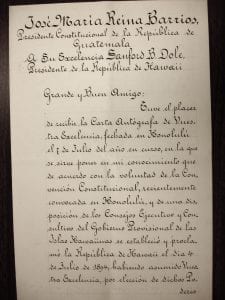 José María Reina Barrios,
Presidente Constitucional de la República de
Guatemala
A Su Excelencia Sanford B. Dole,
Presidente de la República de Hawaii
Grande y Buen Amigo:
Tuve el placer
de recibir la Carta Autógrafa de Vues-
tra Excelencia, fechada en Honolulú
el 7 de Julio del año en curso, en la que
se sirve poner en mi conocimiento que
de acuerdo con la voluntad de la Con-
vención Constitucional, recientemente
convocada en Honolulú, y de una dis-
posición de los Consejos Ejecutivo y Con-
sultivo del Gobierno Provisional de las
Islas Hawaiianas se estableció y procla-
mó la República de Hawaii el día 4
de Julio de 1894, habiendo asumido Vues-
tra Excelencia, por elección de dichos Po-
deres